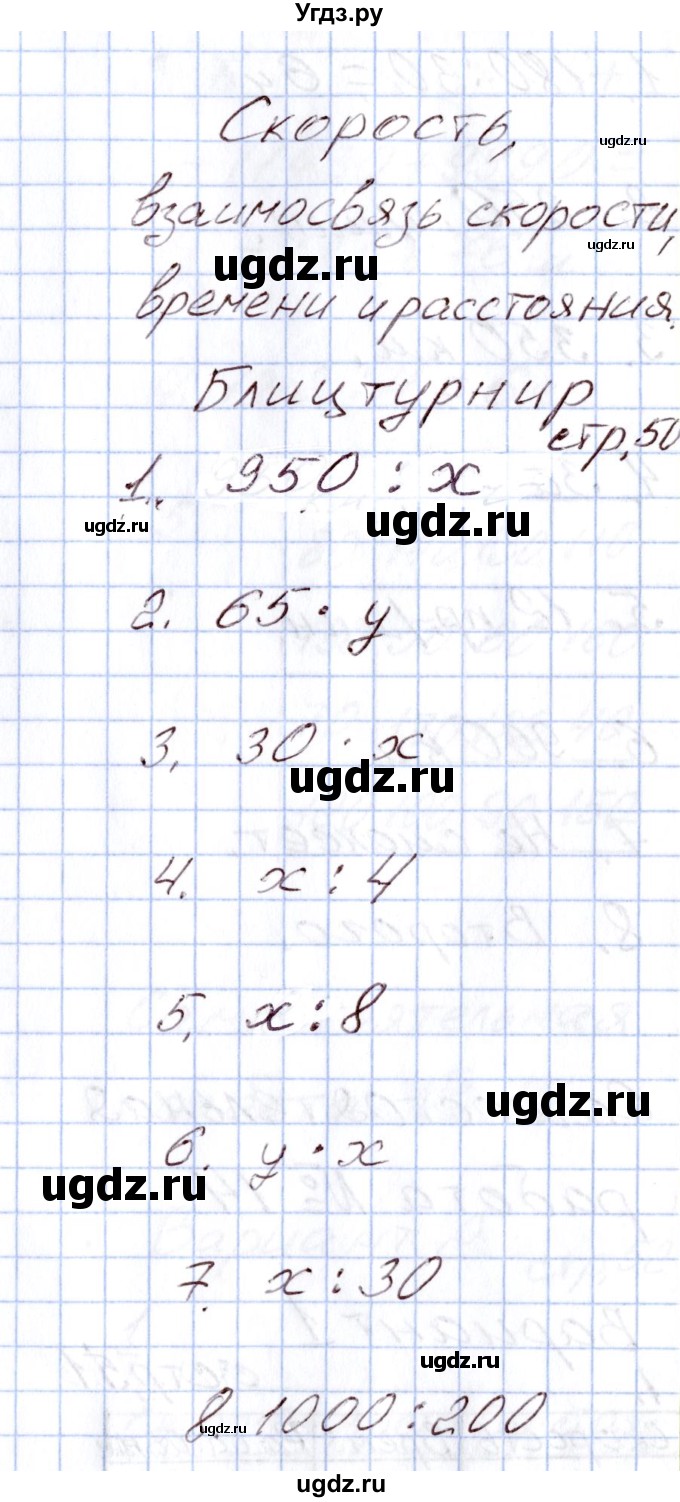 Угдз.ру
Скорость,
ugdz.ru
взаимосвязь скорости,
ugdz.ru
ugdz.ru
времени и расстояния.
Блицтурнир
стр. 50
1. 950 : x
ugdz.ru
ugdz.ru
2. 65 · y
3. 30 · x
ugdz.ru
4. x : 4
5. x : 8
ugdz.ru
6. y · x
ugdz.ru
7. x : 30
ugdz.ru
8. 1000 : 200
ugdz.ru
ugdz.ru